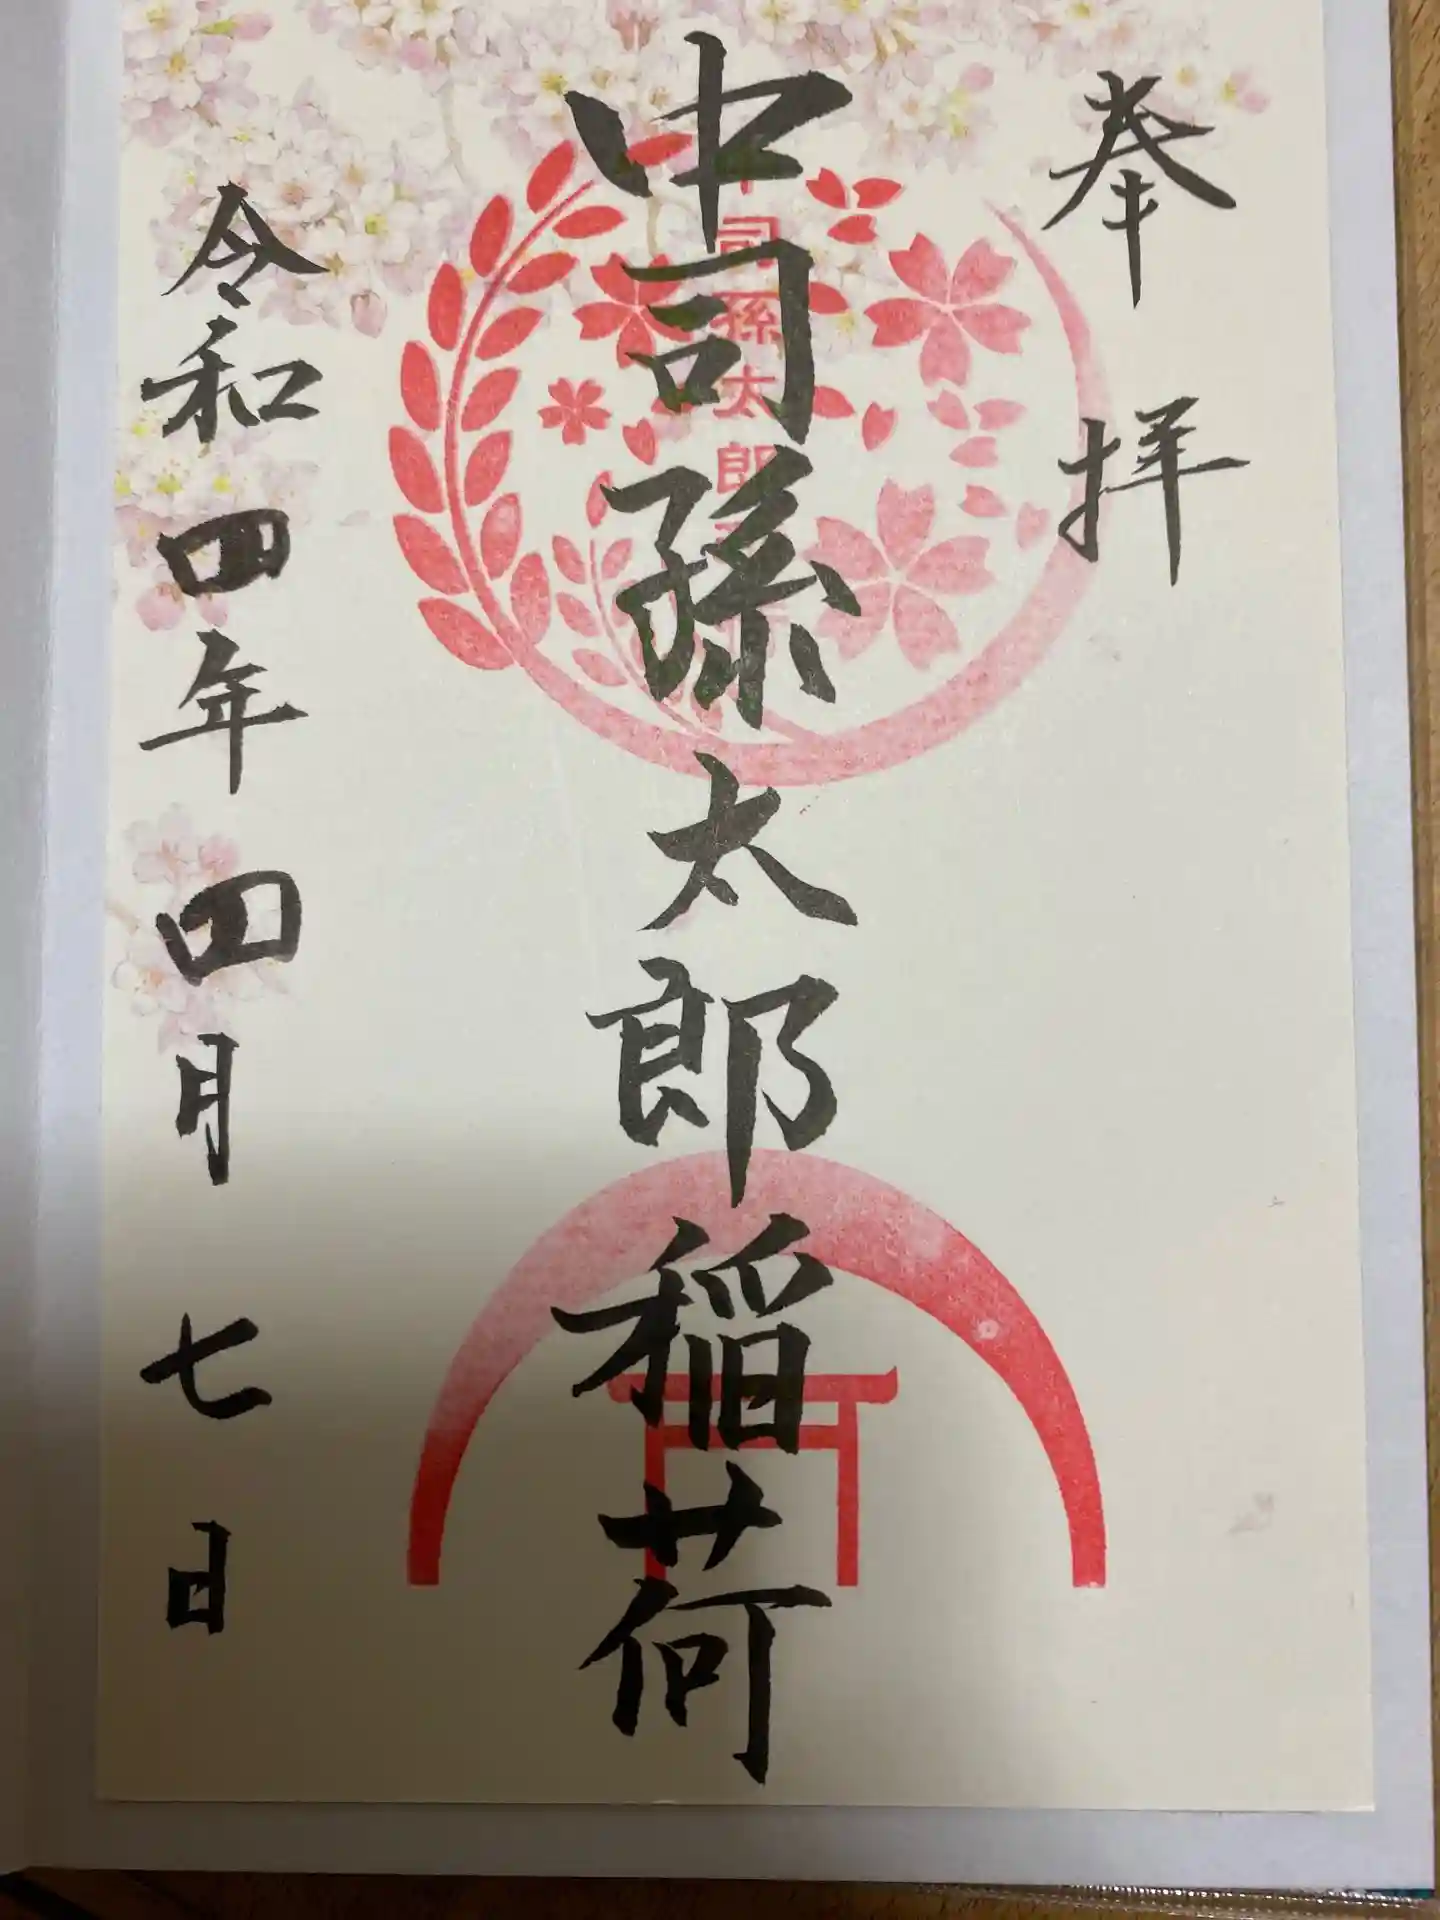 奉拝
中司孫太郎稲荷
司孫太郎
令和四年四月七日